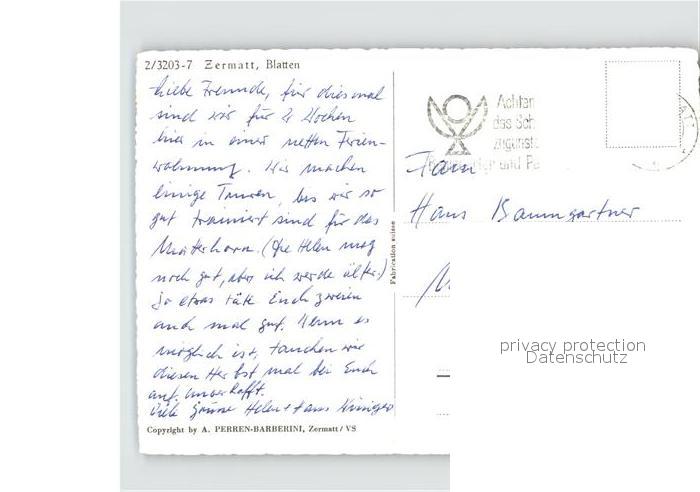 2/3203-7 Zermatt, Blatten
Liebe Freunde, für diesmal
sind wir für 2 Wochen
hier in einer netten Ferien-
wohnung. Wir machen
einige Touren, bis wir so
gut trainiert sind für das
Matterhorn. (Die Helen mag
noch gut, aber ich werde älter.)
So etwas täte Euch zweien
auch mal gut. Wenn es
möglich ist, tauchen wir
diesen Herbst mal bei Euch
auf. Unverhofft.
Viele Grüsse Helen + Hans
Copyright by A. PERREN-BARBERINI, Zermatt/VS
Fabrication suisse
Achten
das Sch
zugunste
und Pa
Fam
Hans Baumgartner
privacy protection
Datenschutz